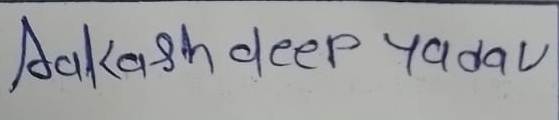 Aakash deep yadav